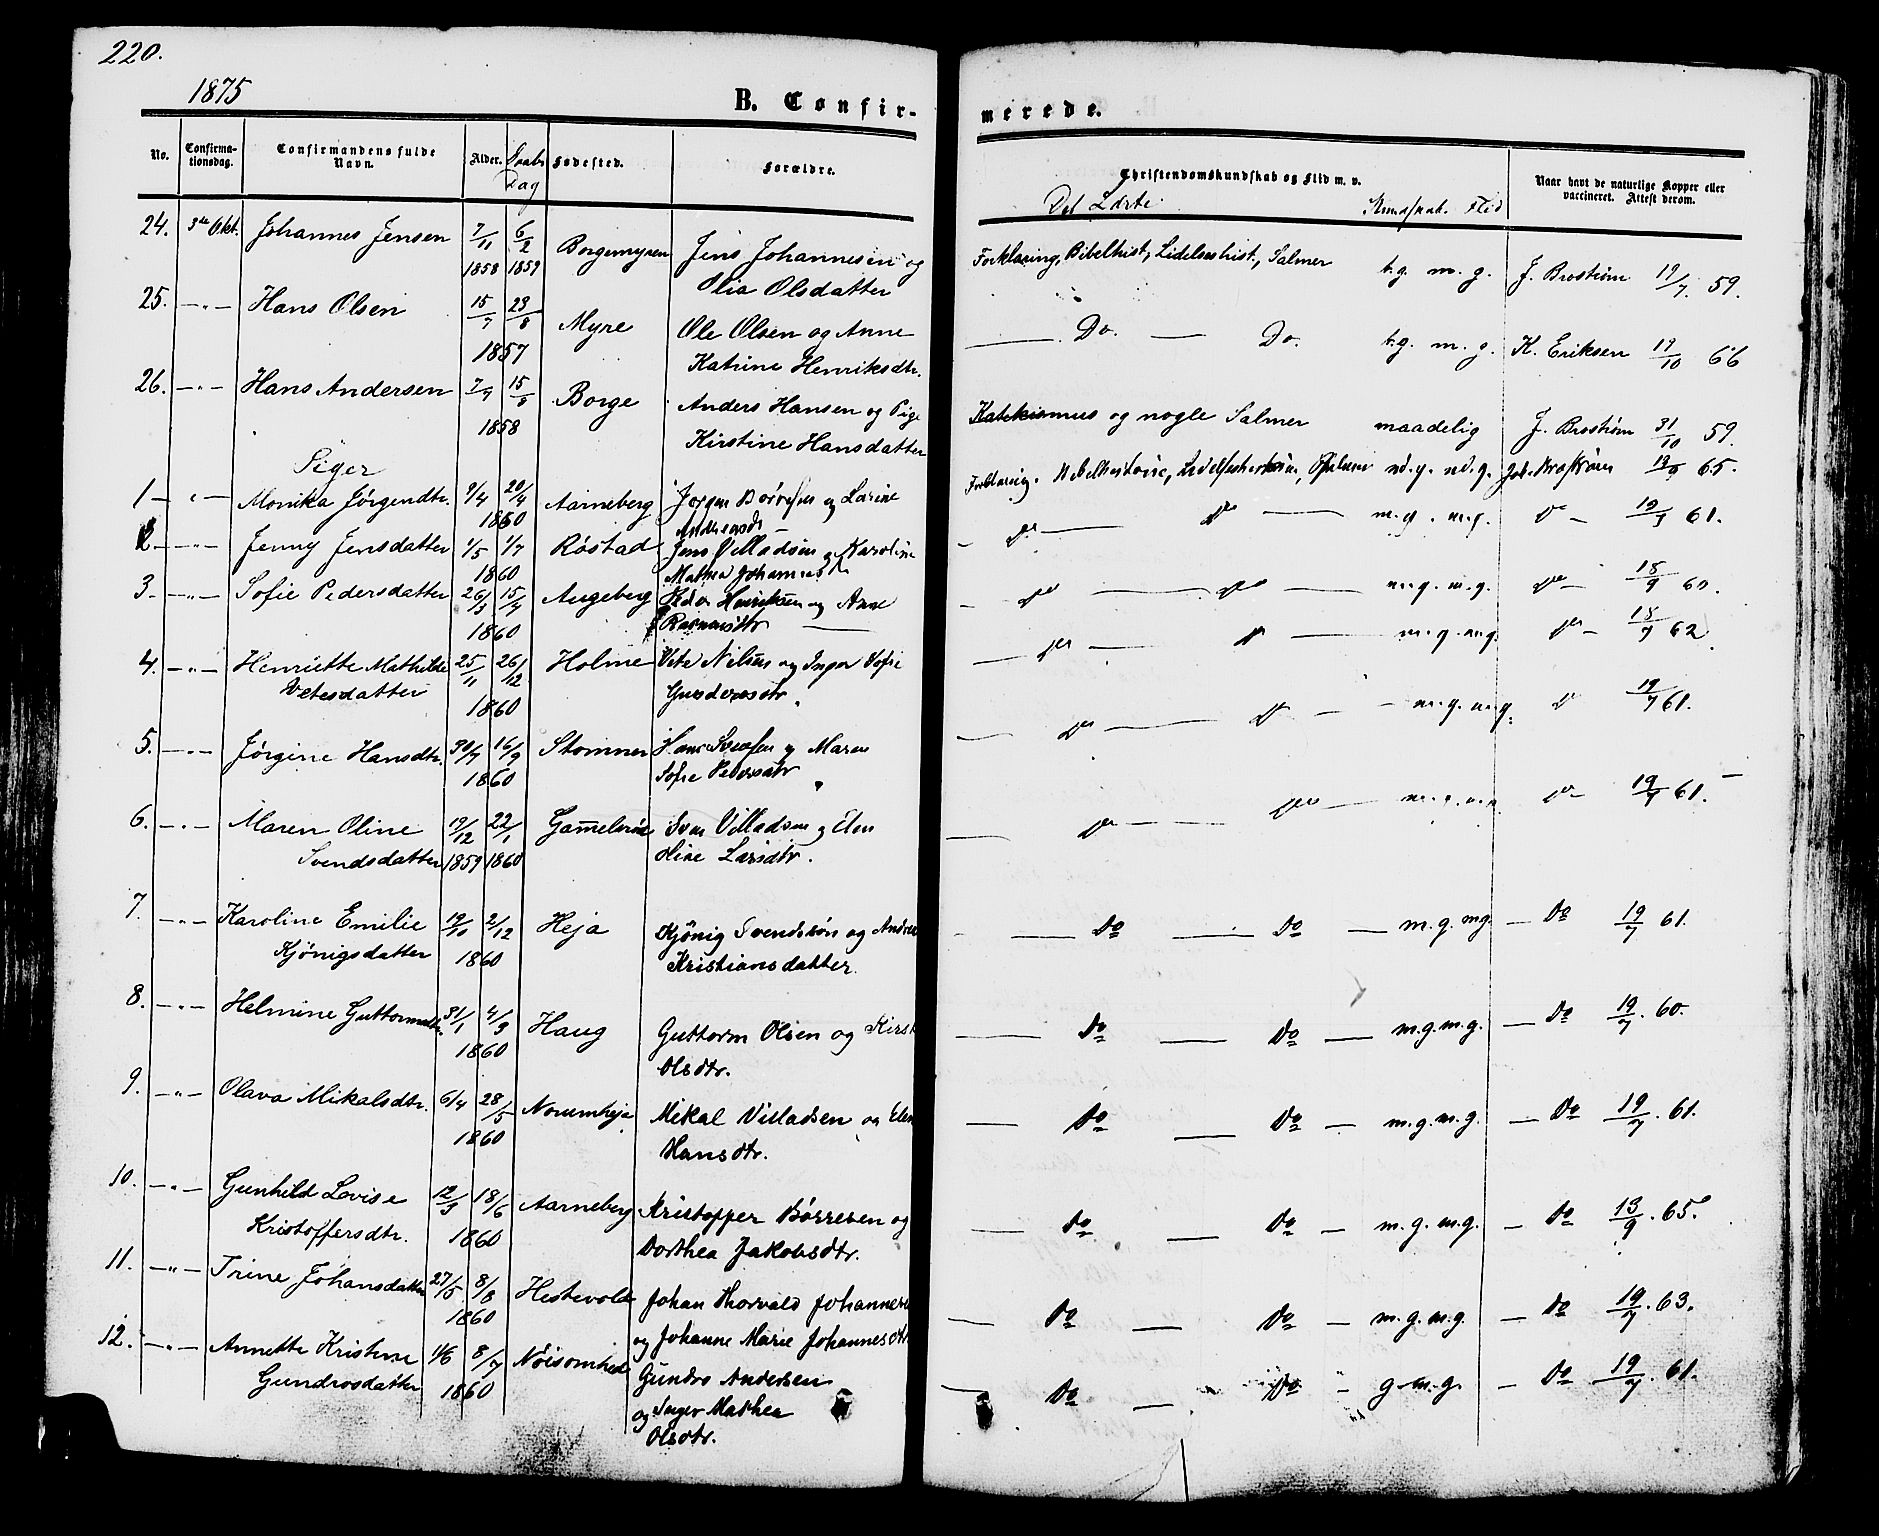 220.
1875
B. Confir-
merede.
No.
Confirma-
tionsdag.
Confirmandens fulde
Navn.
Alder.
Daabs
Dag
Fødested.
Forældre.
Christendomskundskab og Flid m. v.
Det Lærte. Kundskab. Flid
Naar havt de naturlige Kopper eller
vaccineret. Attest derom.
24. 3de Okt. Johannes Jensen 7/11 1858 6/2 1859 Borgemyren Jens Johannesen og
Olia Olsdatter
Forklaring, Bibelhist., Lidelseshist., Salmer t.g. m. g. J. Brostrøm 19/7. 59.
25. — " — Hans Olsen 15/7 23/8 1857 Myre Ole Olsen og Anne
Katrine Henriksdtr.
Do. — Do. t.g. m. g. K. Eriksen 17/10 66
26. — " — Hans Andersen 7/7 15/8 1858 Borge Anders Hansen og Pige
Kirstine Hansdatter
Katekismus og nogle Salmer maadelig J. Brostrøm 31/10 59.
Piger
1 — " — Monika Jørgendtr. 9/4 20/4 1860 Aarneberg Jørgen Børresen og Larine
Andreasdt
Forklaring. Bibelhistorie, Lidelseshistorie, Psalmer m.g. m.g. Joh. Brostrøm 65.
2 — " — Jenny Jensdatter 1/5 1/7 1860 Røstad Jens Villadsen og Karoline
Mathea Johannesd
Do — Do — m.g. m.g. Do — 19/7 61.
3 — " — Sofie Pedersdatter 26/3 15/4 1860 Augeberg Peder Henriksen og Anne
Rasmusdtr
Do — Do — m.g. m.g. Do — 60.
4. — " — Henriette Mathilde 25/11 26/12 1860 Holme Vete Nilsen og Inger Sofie
Vetesdatter
Gundersdtr
Do — Do — m.g. m.g. Do — 62
5. — " — Jørgine Hansdtr. 30/7 16/9 1860 Stomner Hans Svensen og Maren
Sofie Pedersdtr
Do — Do — m.g. m.g. Do 19/7 61.
6. — " — Maren Oline 19/12 1859 22/1 1860 Sven Villadsen og Elen
Svendsdatter
Oline Larsdtr.
Do — Do — Do — 19/7 61.
7. — " — Karoline Emilie 19/10 2/12 1860 Heja Kjönig Svendsön og Andrea
Kjönigsdatter
Kristiansdatter.
Do — Do — m.g. mg. — Do 19/7 61.
8. — " — Helmine Guttormsdtr. 31/1 4/3 1860 Haug Guttorm Olsen og Kirst
Olsdtr.
Do — Do — m.g. m.g. — Do 19/7. 60.
9. — " — Olava Mikalsdtr. 6/4 28/5 1860 Norumheja Mikal Villadsen og Elen
Hansdtr.
Do — Do — m.g. m.g. — Do 19/7. 61.
10. — " — Gunhild Lovise 12/3 18/6 1860 Aarneberg Kristopper Börresen og
Kristoffersdtr.
Dorthea Jakobsdtr.
Do — Do — m.g. m.g. — Do 13/9. 65.
11. — " — Trine Johansdatter 27/5 8/8 1860 Hestevold Johan Thorvald Johannese
og Johanne Marie Johannesdtr
Do — Do — m.g. m.g. — Do 19/7. 63.
12. — " — Annette Kristine 1/6 8/7 1860 Nöisomhed Gundro Andersen
Gundrosdatter
og Inger Mathea
Olsdtr.
Do — Do — g. m.g. — Do 19/7. 61.